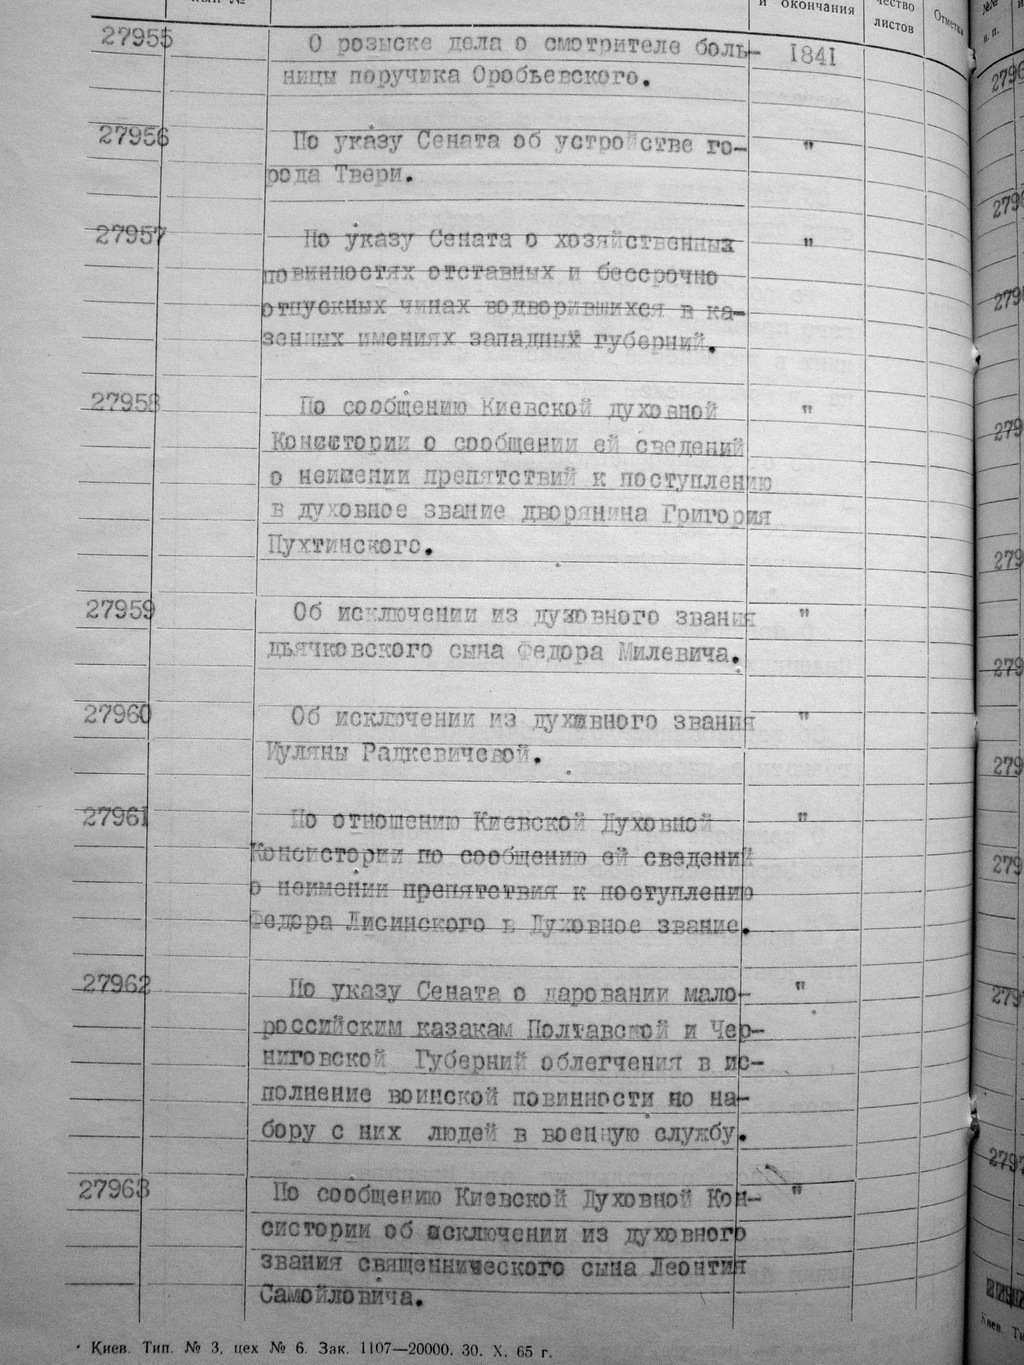 и окончания
чество
листов
Отметки
27955 О розыске дела о смотрителе боль- 1841
ницы поручика Оробьевского.
27956 По указу Сената об устройстве го- "
рода Твери.
27957 По указу Сената о хозяйственных "
повинностях отставных и бессрочно
отпускных чинах водворившихся в ка-
зенных имениях западных губерний.
27958 По сообщению Киевской духовной "
Консистории о сообщении ей сведений
о неимении препятствий к поступлению
в духовное звание дворянина Григория
Пухтинского.
27959 Об исключении из духовного звания "
дьячковского сына Федора Милевича.
27960 Об исключении из духовного звания "
Иуляны Радкевичевой.
27961 По отношению Киевской Духовной "
Консистории по сообщению ей сведений
о неимении препятствия к поступлению
Федора Лисинского в Духовное звание.
27962 По указу Сената о даровании мало- "
российским казакам Полтавской и Чер-
ниговской Губерний облегчения в ис-
полнение воинской повинности по на-
бору с них людей в военную службу.
27963 По сообщению Киевской Духовной Кон- "
систории об исключении из духовного
звания священнического сына Леонтия
Самойловича.
Киев. Тип. № 3, цех № 6. Зак. 1107—20000. 30. X. 65 г.